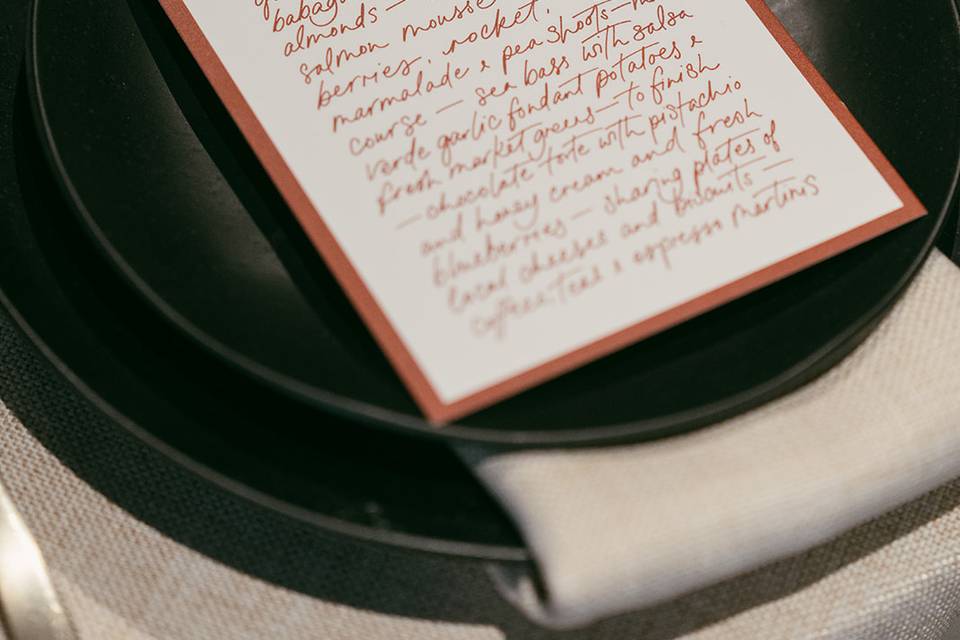 babagan
almonds —
salmon mousse
berries, rocket,
marmalade & pea shoots — m
course — sea bass with salsa
verde garlic fondant potatoes &
fresh market greens — to finish
— chocolate torte with pistachio
and honey cream and fresh
blueberries — sharing plates of
local cheeses and biscuits —
coffee, teas & espresso martinis